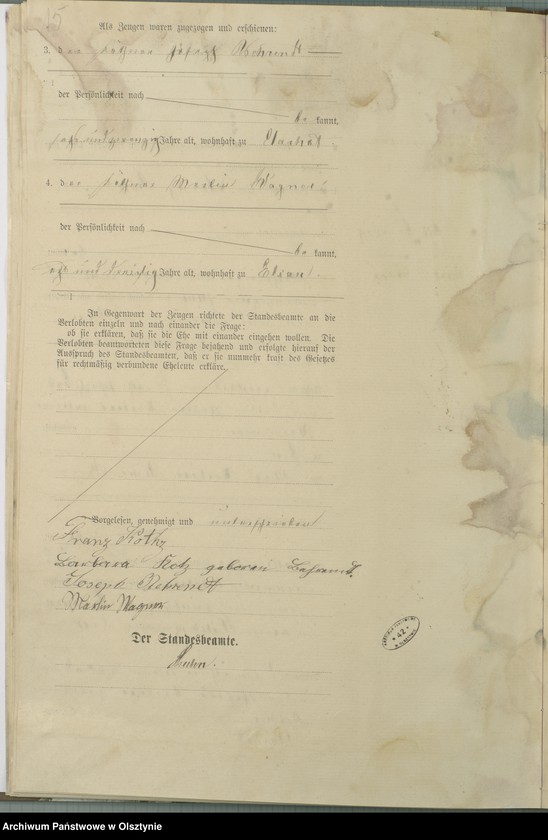 15
Als Zeugen waren zugezogen und erschienen:
3. der Joseph Behrendt
der Persönlichkeit nach
be kannt,
Jahre alt, wohnhaft zu
4. der Martin Wagner
der Persönlichkeit nach
be kannt,
und dreißig Jahre alt, wohnhaft zu
In Gegenwart der Zeugen richtete der Standesbeamte an die
Verlobten einzeln und nach einander die Frage:
ob sie erklären, daß sie die Ehe mit einander eingehen wollen. Die
Verlobten beantworteten diese Frage bejahend und erfolgte hierauf der
Ausspruch des Standesbeamten, daß er sie nunmehr kraft des Gesetzes
für rechtmäßig verbundene Eheleute erkläre.
Vorgelesen, genehmigt und unterschrieben
Franz
Barbara geboren
Joseph Behrendt
Martin Wagner
Der Standesbeamte.
42
Archiwum Państwowe w Olsztynie